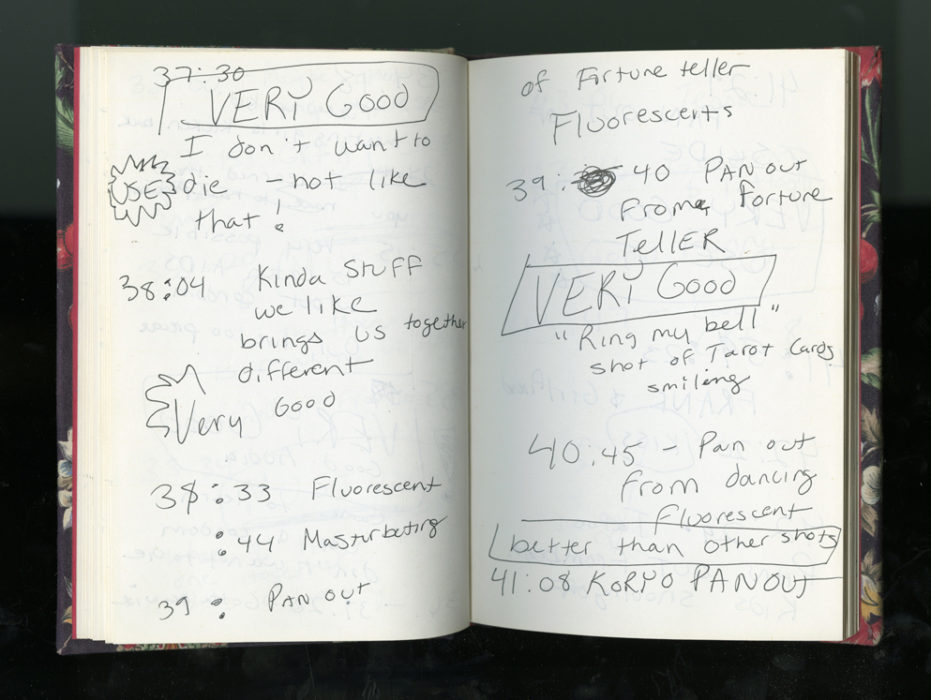 37:30
VERY Good
I don't want to
USE die - not like
that!
38:04 Kinda stuff
we like
brings us together
different
Very Good
38:33 Fluorescent
:44 Masturbating
39: PAN out
of Fortune teller
Fluorescents
39: 40 PAN out
From Fortune
TELLER
VERY Good
"Ring my bell"
shot of Tarot Cards
smiling
40:45 - Pan out
from dancing
Fluorescent
better than other shots
41:08 KORYO PAN OUT